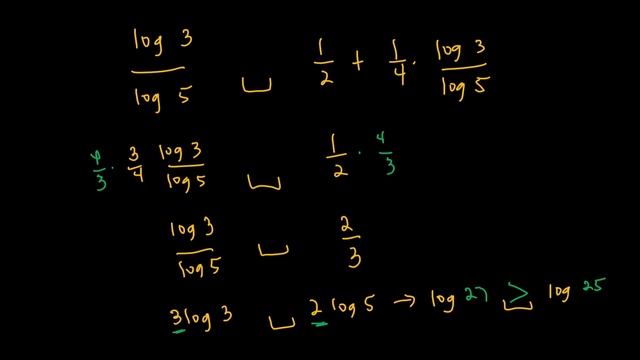 log 3 / log 5 ␣ 1/2 + 1/4 · log 3 / log 5
4/3 · 3/4 log 3 / log 5 ␣ 1/2 · 4/3
log 3 / log 5 ␣ 2/3
3 log 3 ␣ 2 log 5 → log 27 > log 25